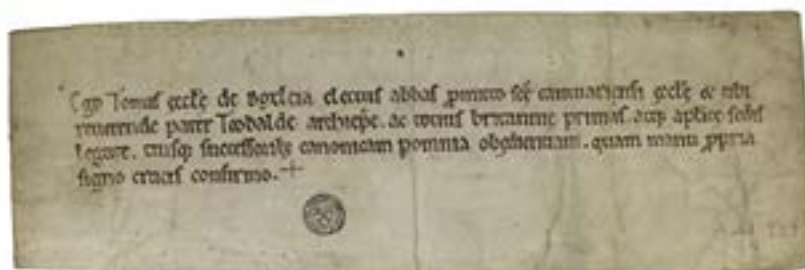 Ego Tomas eccłę de Boxleia electus abbas promitto scę cantuariensi eccłę & tibi
reuerende pater Teobalde archiepe. ac totius britannie primas atq; aplice sedis
legate. tuisq; successorib; canonicam per omnia obędientiam. quam manu ppria
signo crucis confirmo. +